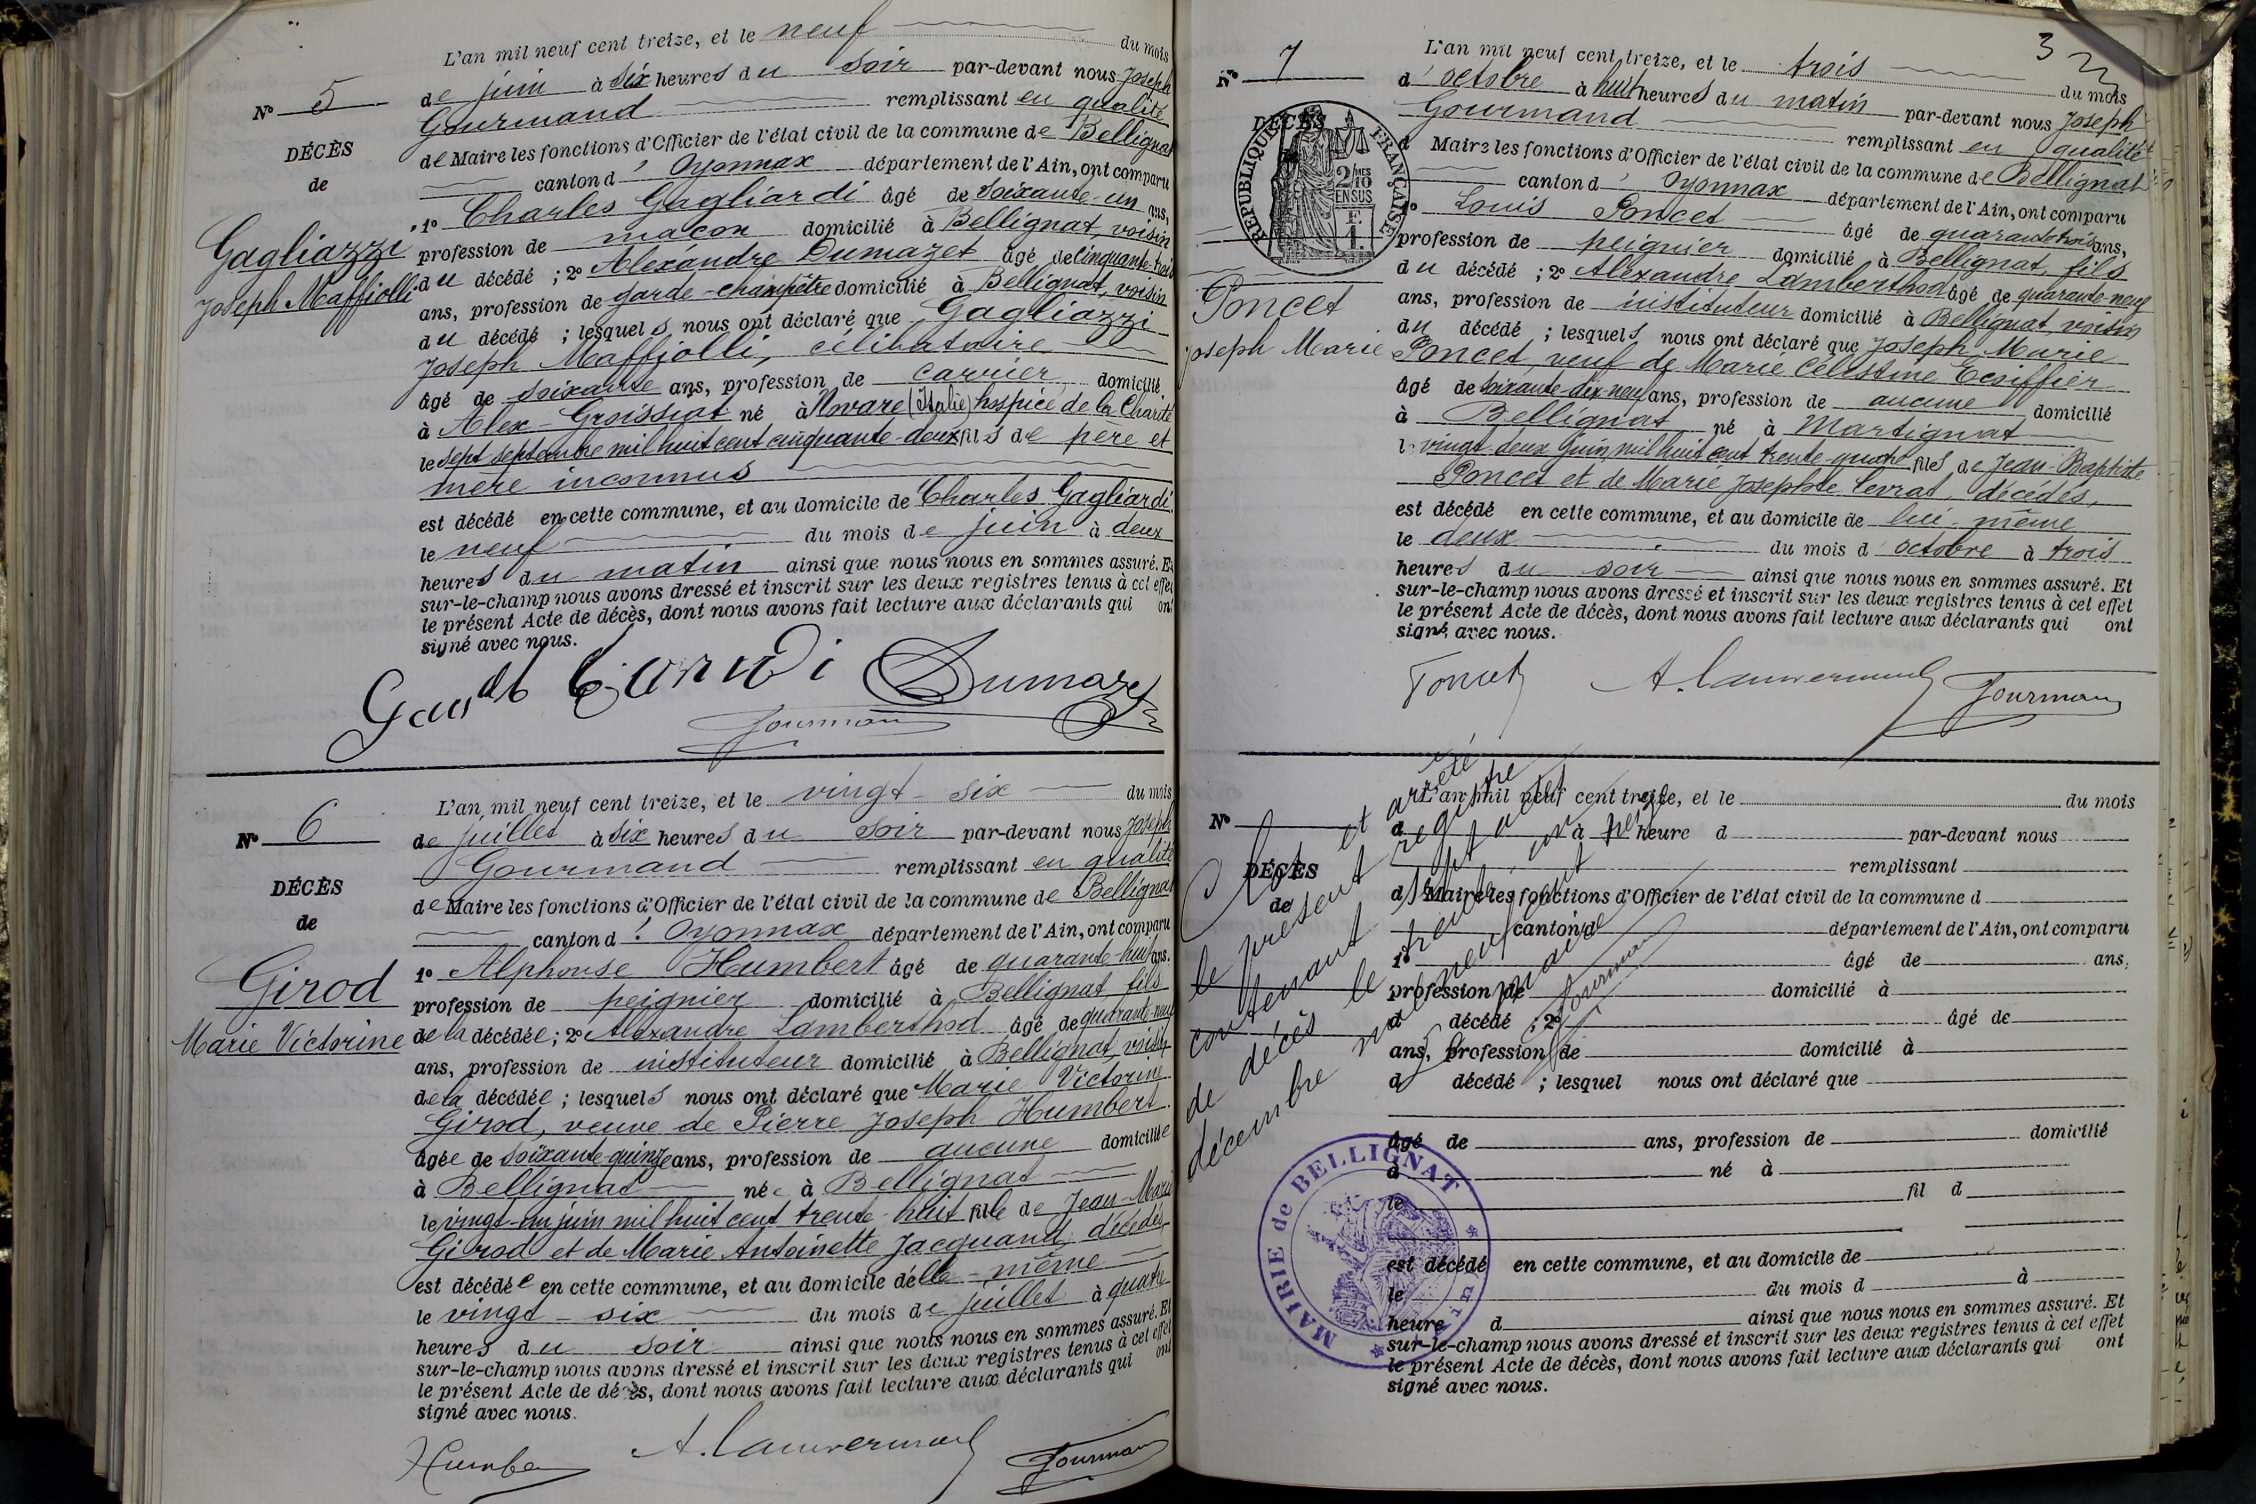 N° 5
DÉCÈS
de
Gagliazzi
Joseph Maffiolli
L'an mil neuf cent treize, et le neuf du mois
de juin à six heures du soir par-devant nous Joseph
Gourmand remplissant en qualité
de Maire les fonctions d'Officier de l'état civil de la commune de Bellignat
canton d'Oyonnax département de l'Ain, ont comparu
1° Charles Gagliardi âgé de soixante-un ans,
profession de maçon domicilié à Bellignat, voisin
du décédé ; 2° Alexandre Dumazet âgé de cinquante-trois
ans, profession de garde-champêtre domicilié à Bellignat, voisin
du décédé ; lesquels nous ont déclaré que Gagliazzi
Joseph Maffiolli, célibataire
âgé de soixante ans, profession de carrier domicilié
à Alex-Groissiat né à Novare (Italie) hospice de la Charité
le sept septembre mil huit cent cinquante-deux fils de père et
mère inconnus
est décédé en cette commune, et au domicile de Charles Gagliardi
le neuf du mois de juin à deux
heures du matin ainsi que nous nous en sommes assuré. Et
sur-le-champ nous avons dressé et inscrit sur les deux registres tenus à cet effet
le présent Acte de décès, dont nous avons fait lecture aux déclarants qui ont
signé avec nous.
Dumazet
Gourmand
N° 6
DÉCÈS
de
Girod
Marie Victorine
L'an mil neuf cent treize, et le vingt-six du mois
de juillet à six heures du soir par-devant nous Joseph
Gourmand remplissant en qualité
de Maire les fonctions d'Officier de l'état civil de la commune de Bellignat
canton d'Oyonnax département de l'Ain, ont comparu
1° Alphonse Humbert âgé de quarante-huit ans.
profession de peignier domicilié à Bellignat, fils
de la décédée ; 2° Alexandre Lamberthod âgé de quarante-neuf
ans, profession de instituteur domicilié à Bellignat, voisin
de la décédée ; lesquels nous ont déclaré que Marie Victorine
Girod, veuve de Pierre Joseph Humbert
âgée de soixante-quinze ans, profession de aucune domiciliée
à Bellignat née à Bellignat
le vingt-un juin mil huit cent trente-huit fille de Jean-Marie
Girod et de Marie Antoinette Jacquand, décédés,
est décédée en cette commune, et au domicile d'elle-même
le vingt-six du mois de juillet à quatre
heures du soir ainsi que nous nous en sommes assuré. Et
sur-le-champ nous avons dressé et inscrit sur les deux registres tenus à cet effet
le présent Acte de décès, dont nous avons fait lecture aux déclarants qui ont
signé avec nous.
Humbert
Gourmand
3
N° 7
DÉCÈS
RÉPUBLIQUE FRANÇAISE
2/10 MES
EN SUS
F. 1.
Poncet
Joseph Marie
L'an mil neuf cent treize, et le trois du mois
d'octobre à huit heures du matin par-devant nous Joseph
Gourmand remplissant en qualité
d Maire les fonctions d'Officier de l'état civil de la commune de Bellignat
canton d'Oyonnax département de l'Ain, ont comparu
1° Louis Poncet âgé de quarante-trois ans,
profession de peignier domicilié à Bellignat, fils
du décédé ; 2° Alexandre Lamberthod âgé de quarante-neuf
ans, profession de instituteur domicilié à Bellignat voisin
du décédé ; lesquels nous ont déclaré que Joseph Marie
Poncet, veuf de Marie Célestine Ecoiffier
âgé de soixante-dix-neuf ans, profession de aucune domicilié
à Bellignat né à Martignat
le vingt-deux juin mil huit cent trente-quatre fils de Jean-Baptiste
Poncet et de Marie Josephte Levrat, décédés,
est décédé en cette commune, et au domicile de lui-même
le deux du mois d'octobre à trois
heures du soir ainsi que nous nous en sommes assuré. Et
sur-le-champ nous avons dressé et inscrit sur les deux registres tenus à cet effet
le présent Acte de décès, dont nous avons fait lecture aux déclarants qui ont
signé avec nous.
Poncet
Gourmand
N°
DÉCÈS
de
L'an mil neuf cent treize, et le du mois
d à heure d par-devant nous
remplissant
d Maire les fonctions d'Officier de l'état civil de la commune d
canton d département de l'Ain, ont comparu
1° âgé de ans,
profession de domicilié à
d décédé ; 2° âgé de
ans, profession de domicilié à
d décédé ; lesquel nous ont déclaré que
âgé de ans, profession de domicilié
à né à
le fil d
est décédé en cette commune, et au domicile de
le du mois d à
heure d ainsi que nous nous en sommes assuré. Et
sur-le-champ nous avons dressé et inscrit sur les deux registres tenus à cet effet
le présent Acte de décès, dont nous avons fait lecture aux déclarants qui ont
signé avec nous.
Clos et arrêté
le présent registre
contenant sept actes
de décès le trente un
décembre mil neuf cent treize
Le maire
Gourmand
MAIRIE de BELLIGNAT
(Ain)